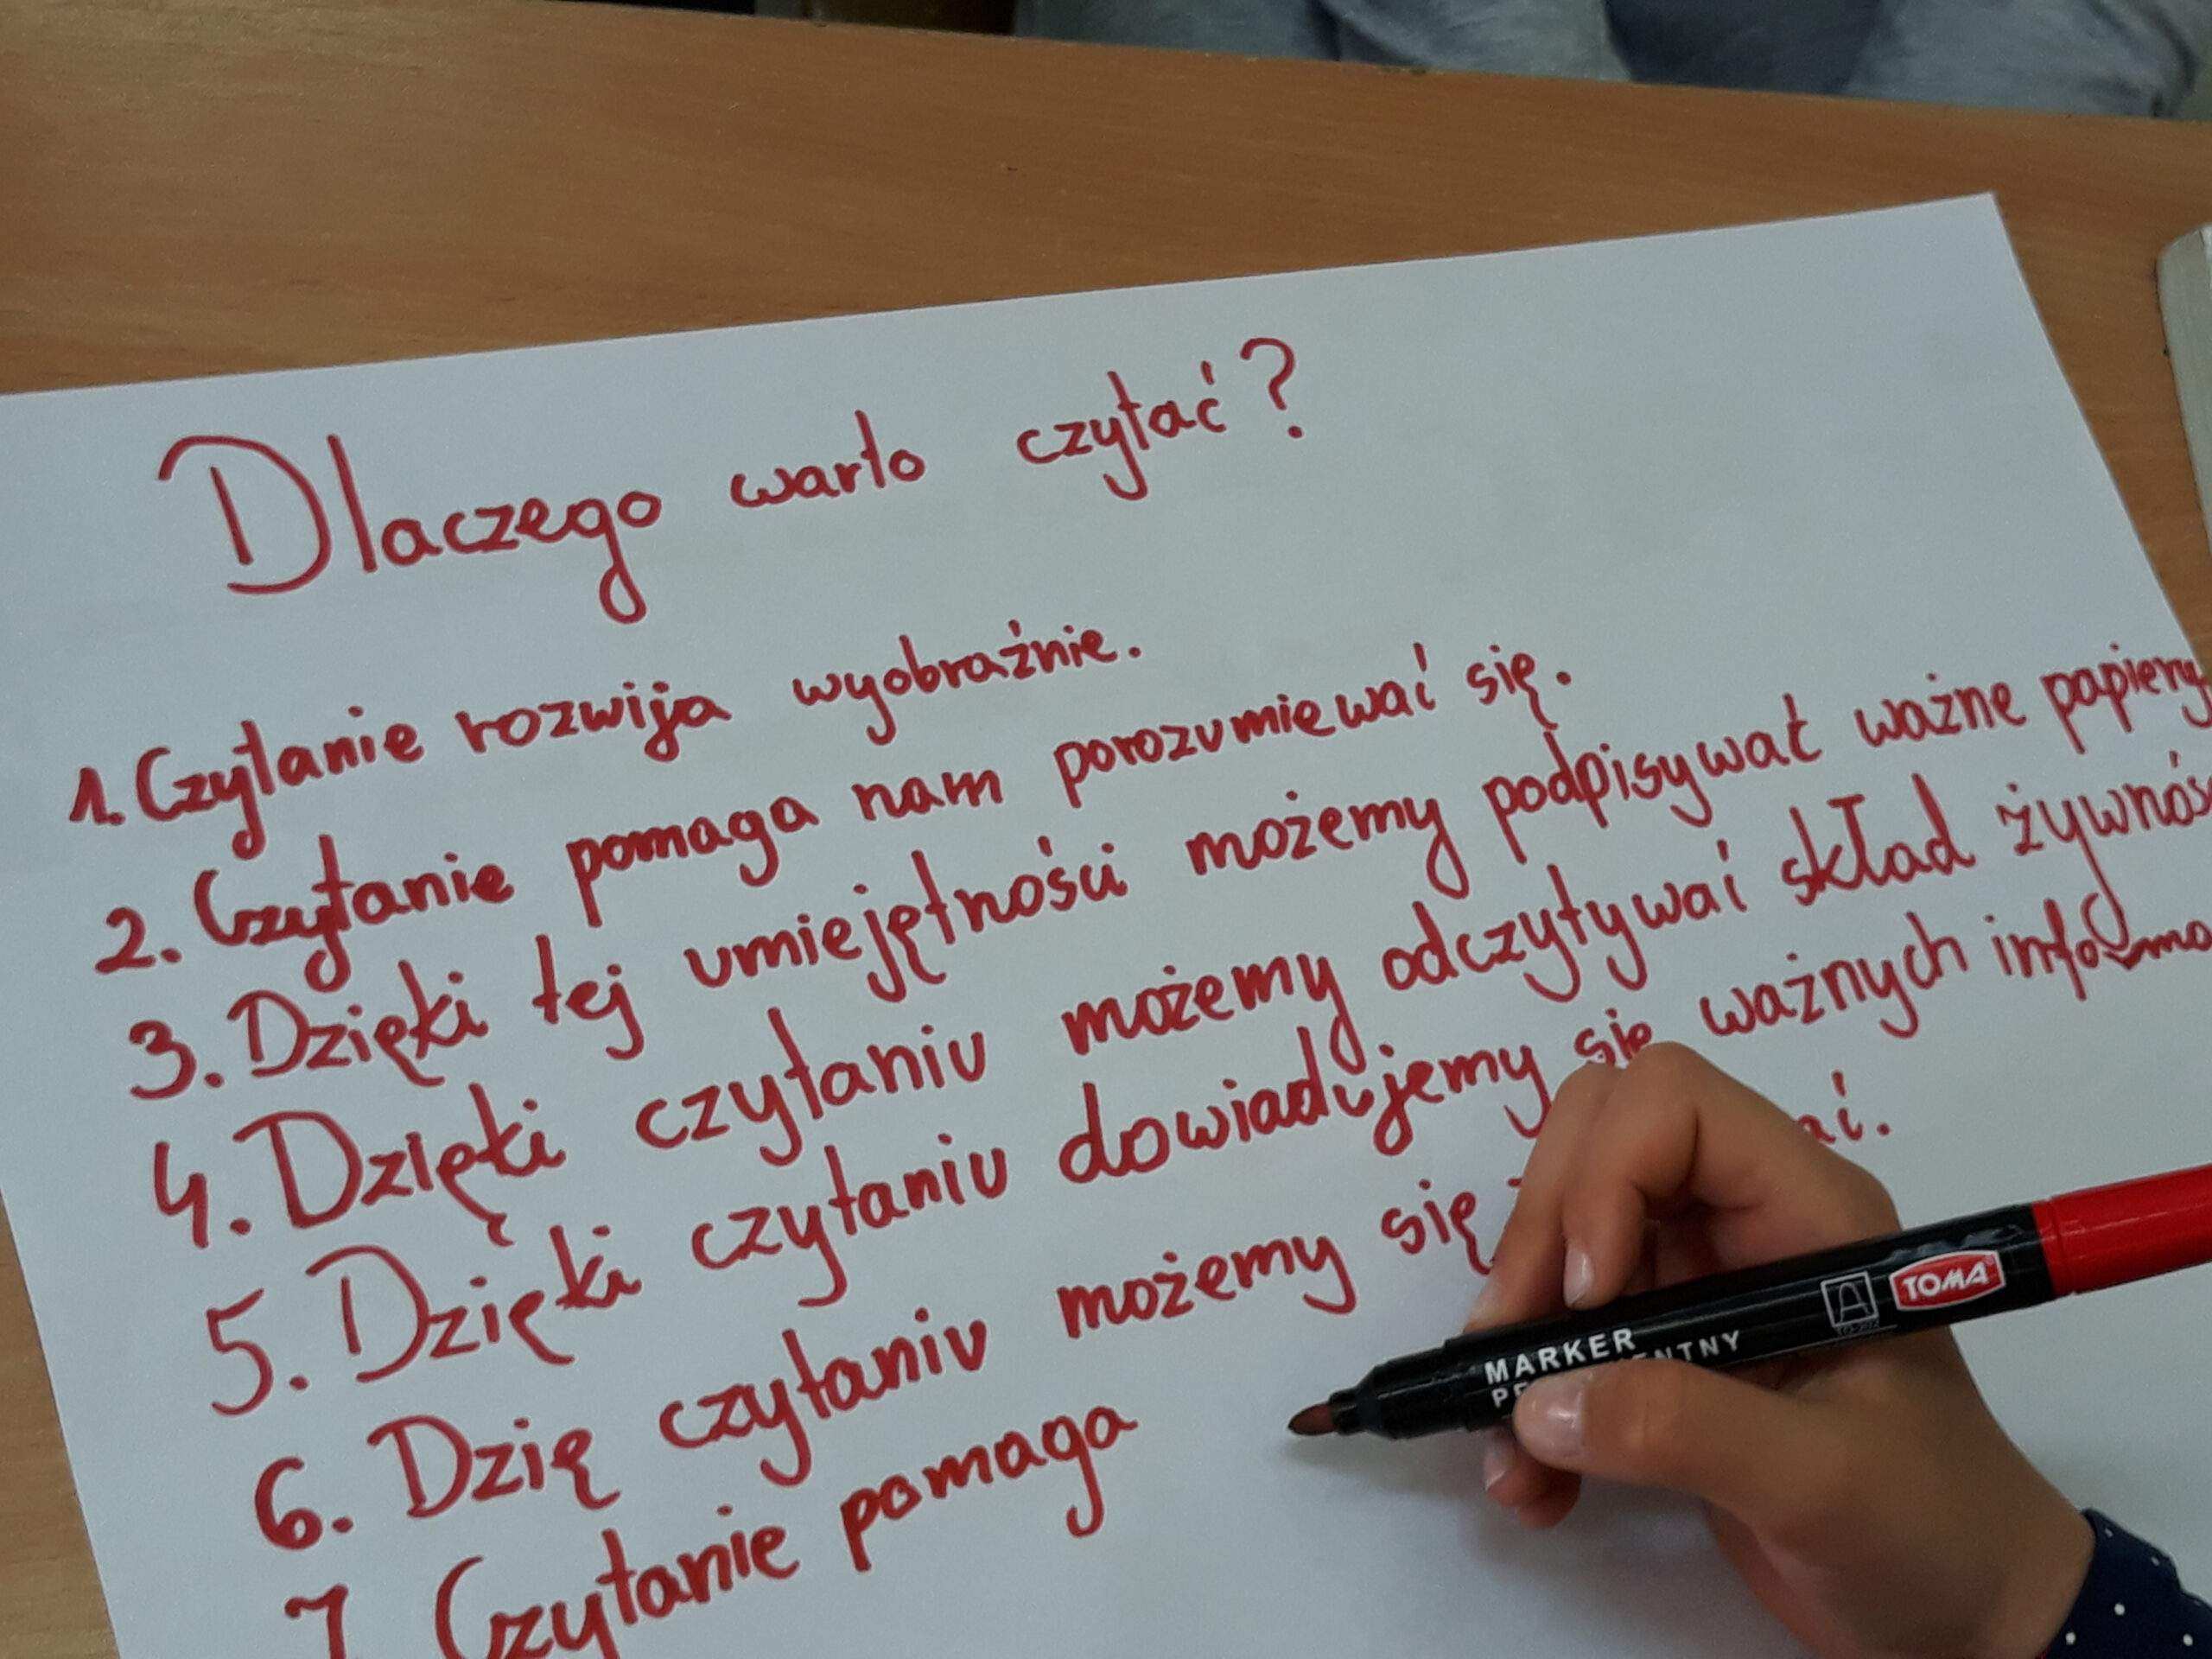 Dlaczego warto czytać?
1. Czytanie rozwija wyobraźnie.
2. Czytanie pomaga nam porozumiewać się.
3. Dzięki tej umiejętności możemy podpisywać ważne papiery
4. Dzięki czytaniu możemy odczytywać skład żywnośc
5. Dzięki czytaniu dowiadujemy się ważnych informa
6. Dzię czytaniu możemy się
7 Czytanie pomaga
MARKER
TOMA